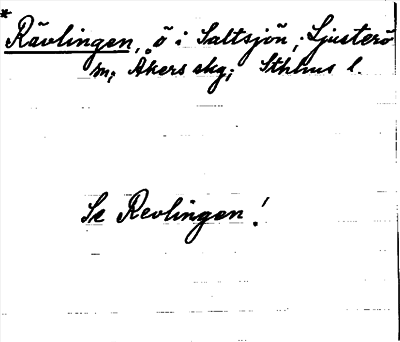 * Rävlingen, ö i Saltsjön, Ljusterö
sn; Åkers skg; Sthlms l.
Se Revlingen!